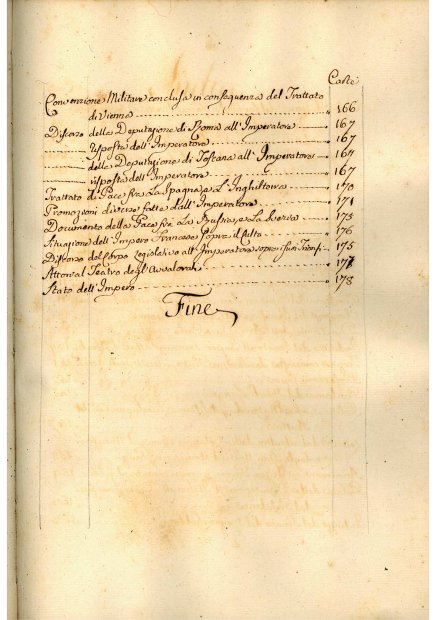 Carte
Convenzione Militare conclusa in consequenza del Trattato
di Vienna 166
Discorso della Deputazione di Roma all'Imperatore 167
risposta dell'Imperatore 167
della Deputazione di Toscana all'Imperatore 167
risposta dell'Imperatore 167
Trattato di Pace fra La Spagna, e L'Inghilterra 170
Promozioni diverse fatte dall'Imperatore 171
Documento della Pace fra La Russia, e La Svezia 173
dell'Impero Francese sopra il Culto 176
Discorso del Corpo Legislativo all'Imperatore sopra i suoi Trionfi 175
al Teatro degli 177
Stato dell'Impero 178
Fine